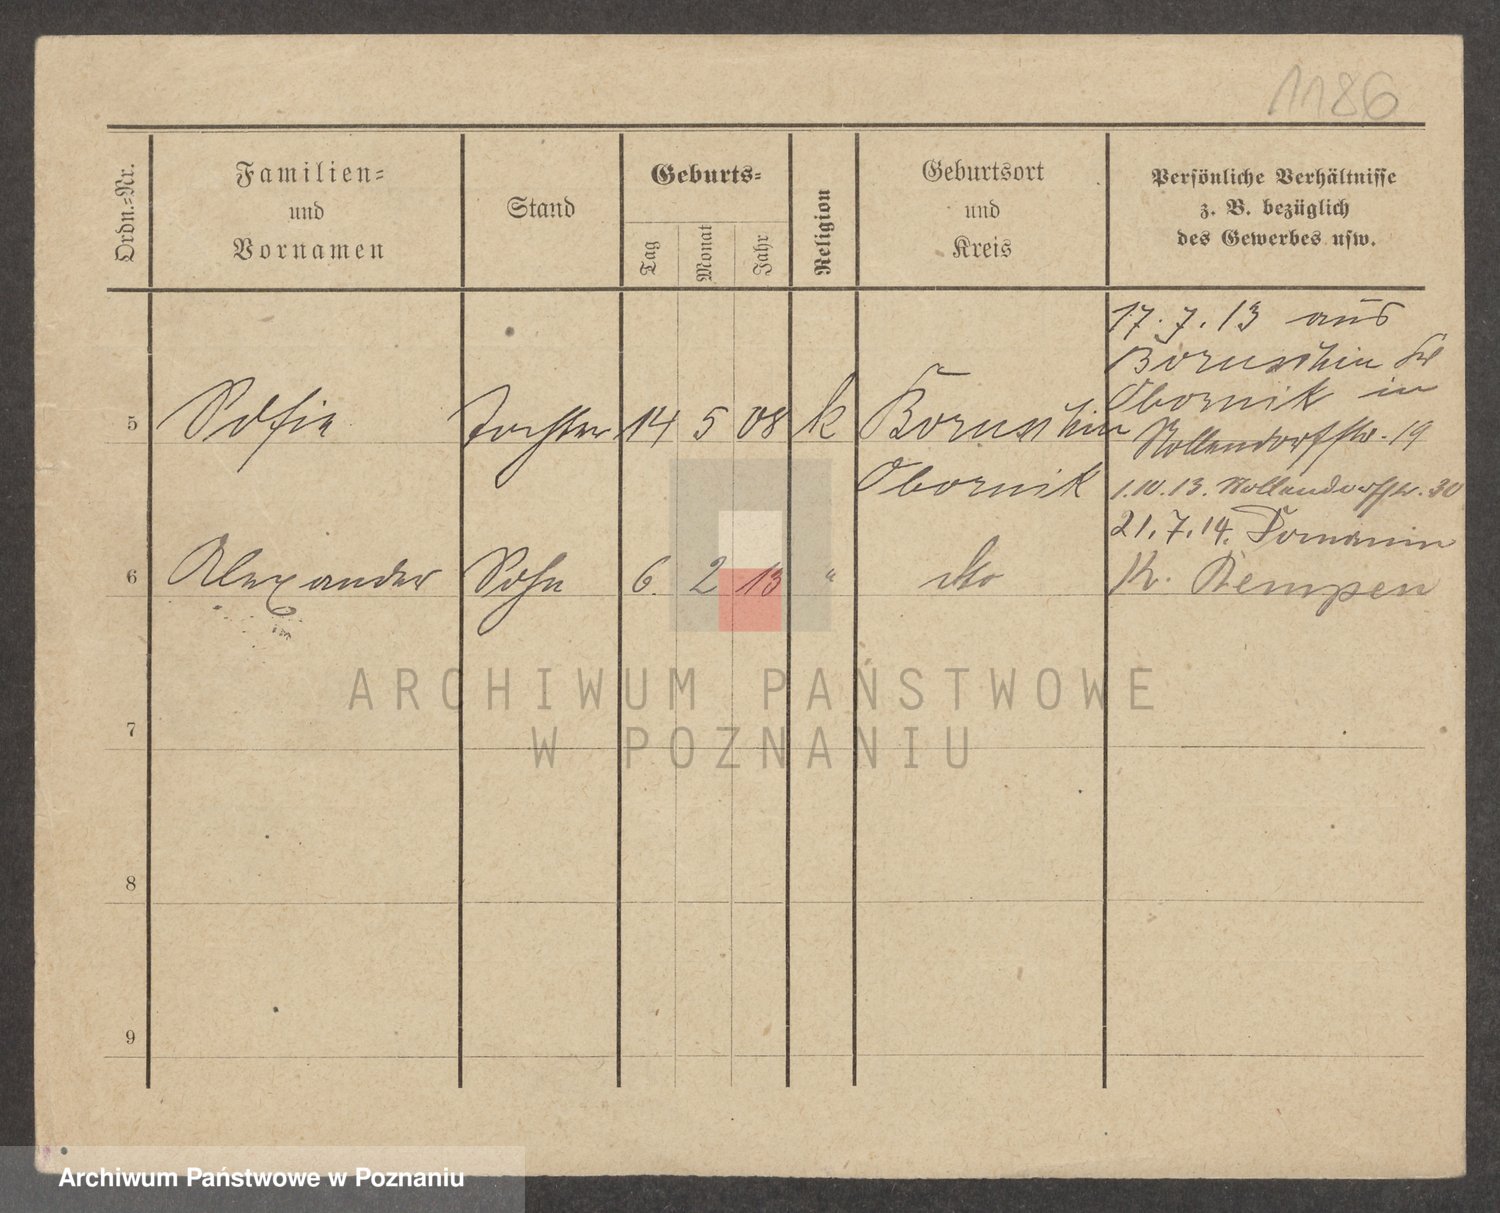 1186
Ordn.-Nr.
Familien-
und
Vornamen
Stand
Geburts-
Tag
Monat
Jahr
Religion
Geburtsort
und
Kreis
Persönliche Verhältnisse
z. B. bezüglich
des Gewerbes usw.
17.7.13 aus
Boruschin Kr
Obornik in
Nollendorfstr. 19
1.10.13. Nollendorfstr. 30
21.7.14. Domanin
Kr. Kempen
5 Sofie Tochter 14 5 08 k Boruschin
Obornik
6 Alexander Sohn 6. 2 13 " dto
7
8
9
ARCHIWUM PAŃSTWOWE
W POZNANIU
Archiwum Państwowe w Poznaniu